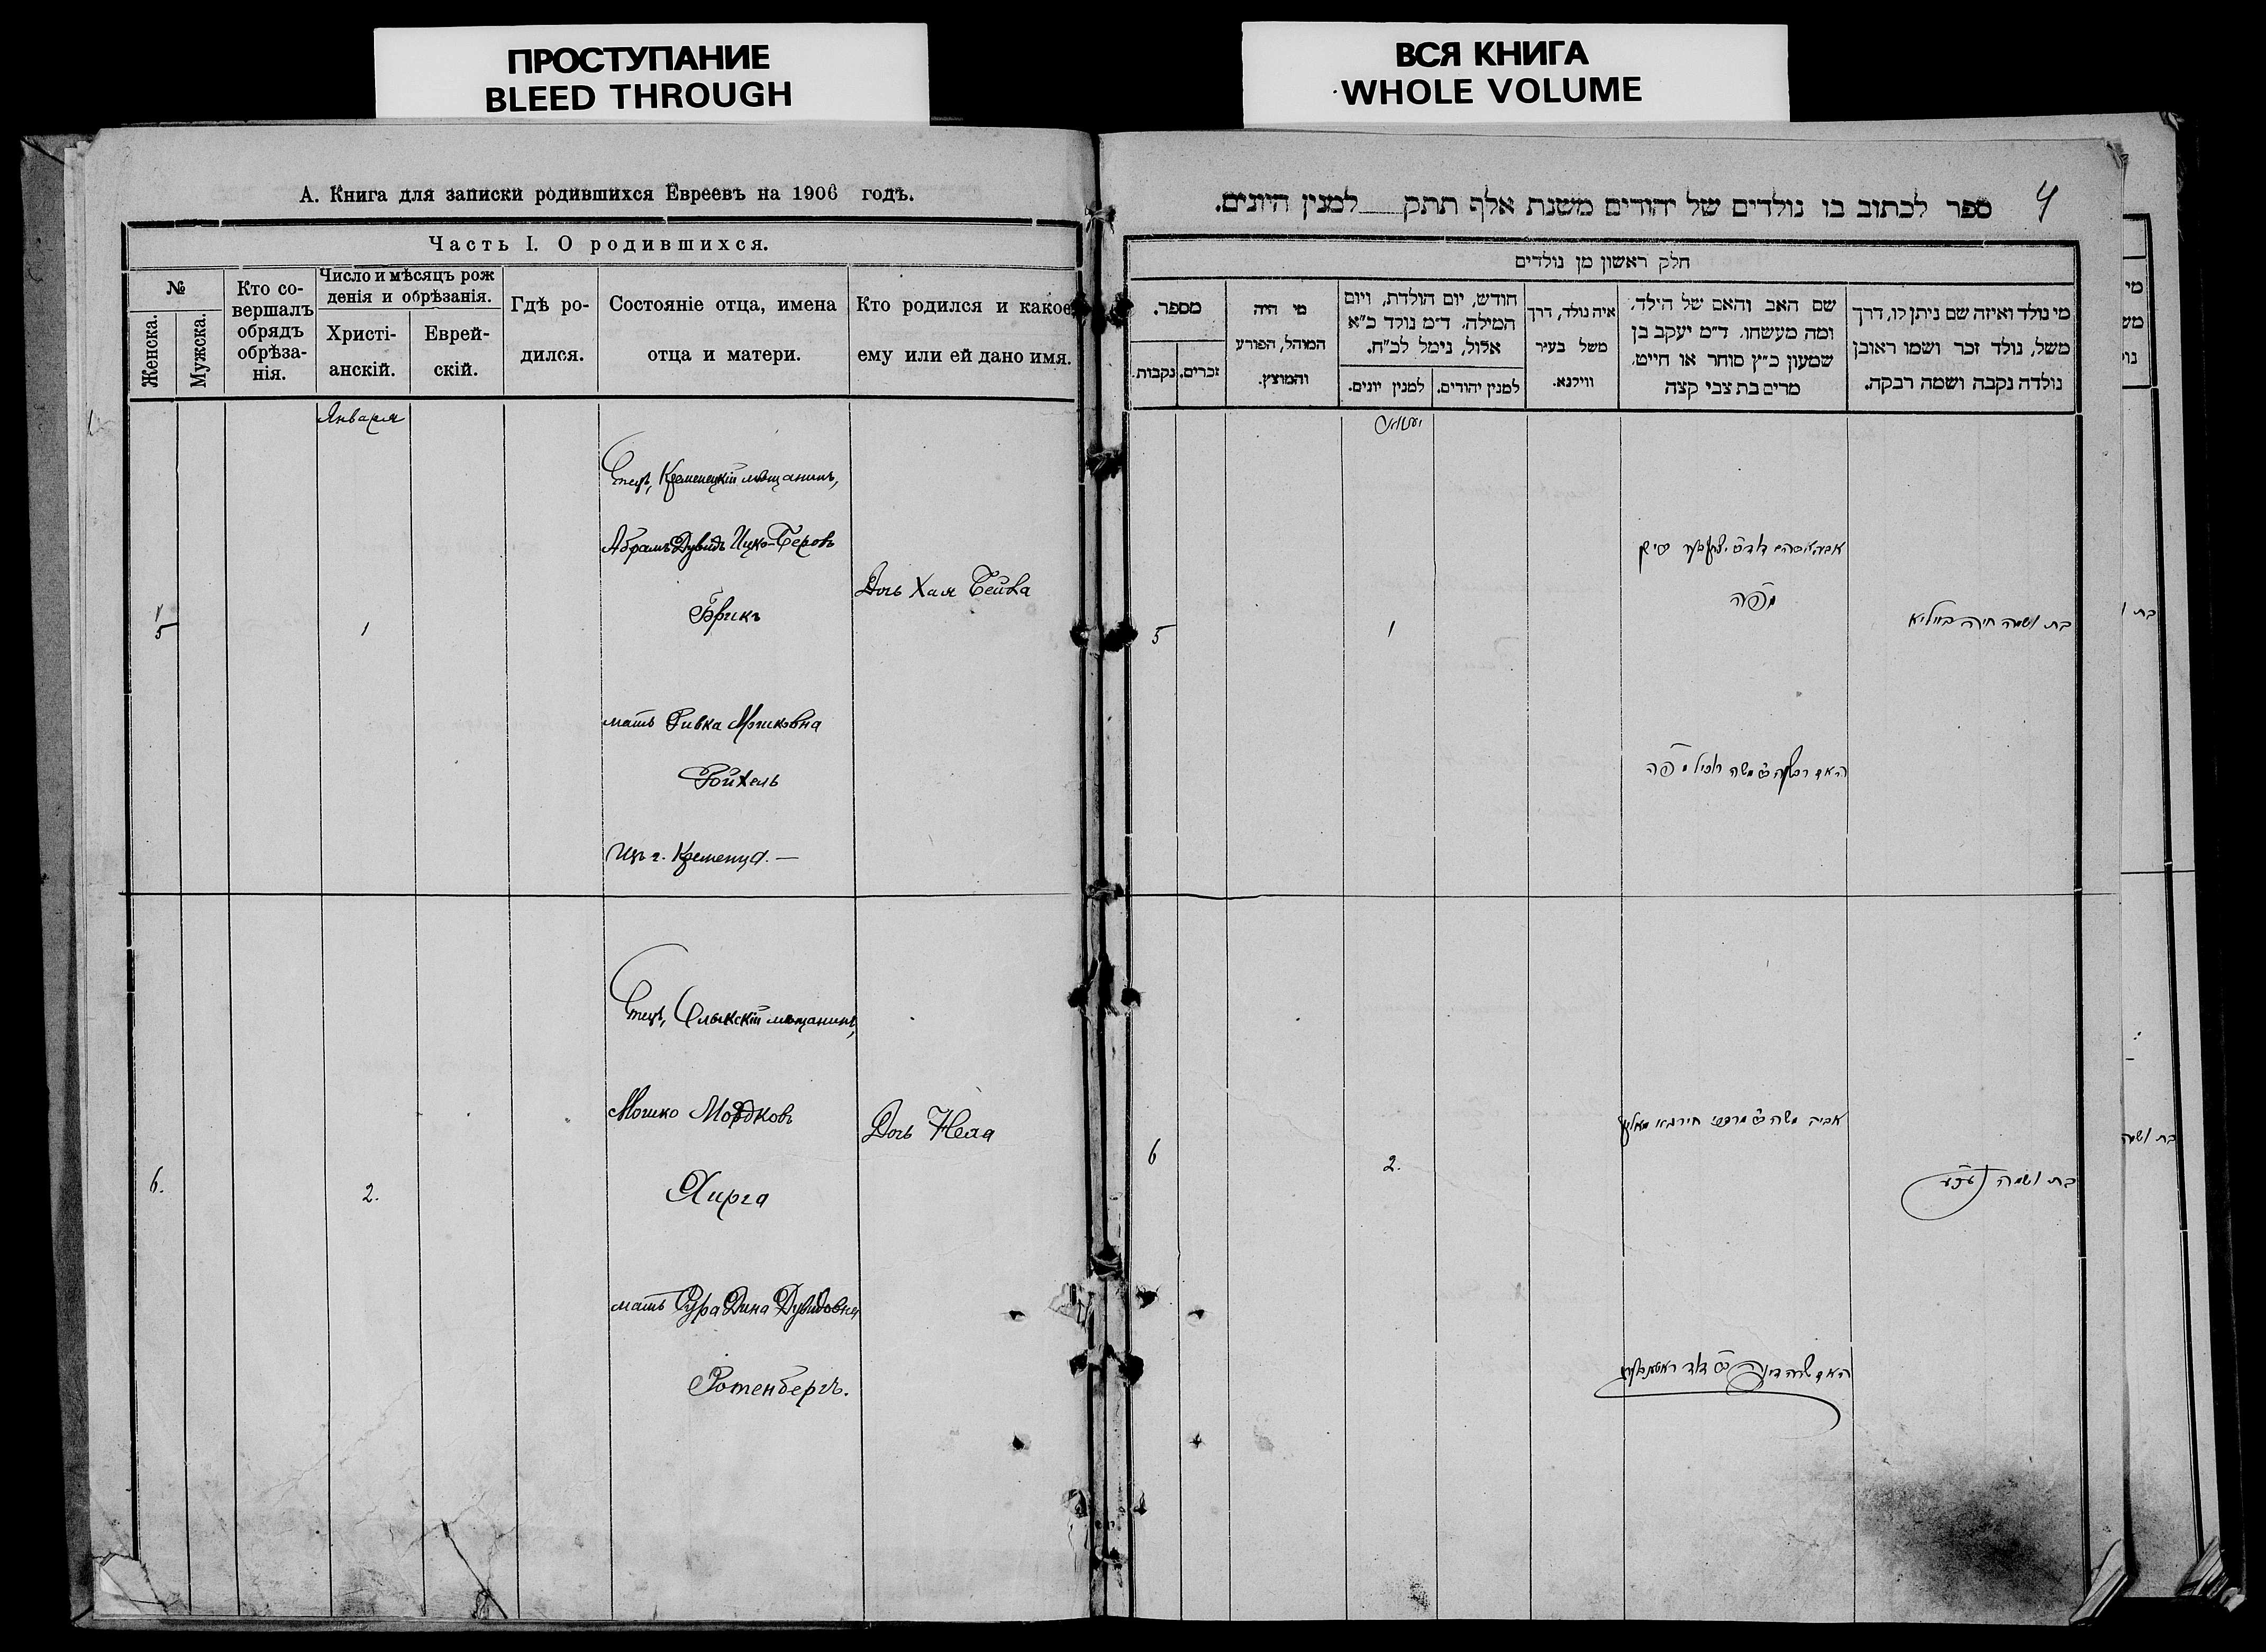 ПРОСТУПАНИЕ
BLEED THROUGH
ВСЯ КНИГА
WHOLE VOLUME
А. Книга для записки родившихся Евреевъ на 1906 годъ.
Часть I. О родившихся.
№
Женска.
Мужска.
Кто со-
вершалъ
обрядъ
обрѣза-
нія.
Число и мѣсяцъ рож
денія и обрѣзанія.
Христі-
анскій.
Еврей-
скій.
Гдѣ ро-
дился.
Состояніе отца, имена
отца и матери.
Кто родился и какое
ему или ей дано имя.
Января
Отецъ, Кременецкій мѣщанинъ,
Абрамъ Дувидъ Ицко-Беровъ
Брикъ
Дочь Хая Бейла
5
1
мать Ривка Мошковна
Ройхель
Изъ г. Кременца. —
Отецъ, Олыкскій мѣщанинъ,
Мошко Мордковъ
Хирга
Дочь Неха
6.
2.
мать Сура Дина Дувидовна
Ротенбергъ.
4
ספר לכתוב בו נולדים של יהודים משנת אלף תתק למנין היונים.
חלק ראשון מן נולדים
מי נולד ואיזה שם ניתן לו, דרך
משל, נולד זכר ושמו ראובן
נולדה נקבה ושמה רבקה.
שם האב והאם של הילד.
ומה מעשהו. ד״מ יעקב בן
שמעון כ״ץ סוחר או חייט.
מרים בת צבי קצה
איה נולד, דרך
משל בעיר
ווילנא.
חודש, יום הולדת, ויום
המילה. ד״מ נולד כ״א
אלול, נימל לכ״ח.
למנין יהודים.
למנין יונים.
מי היה
המוהל, הפורע
והמוצץ.
מספר.
זכרים.
נקבות.
בת ושמה חיה ביילא
5
1
האם רבקה ב״ר משה
בת ושמה
6
2.
אביה משה ב״ר מרדכי
האם שרה דינה ב״ר דוד ראטענבערג